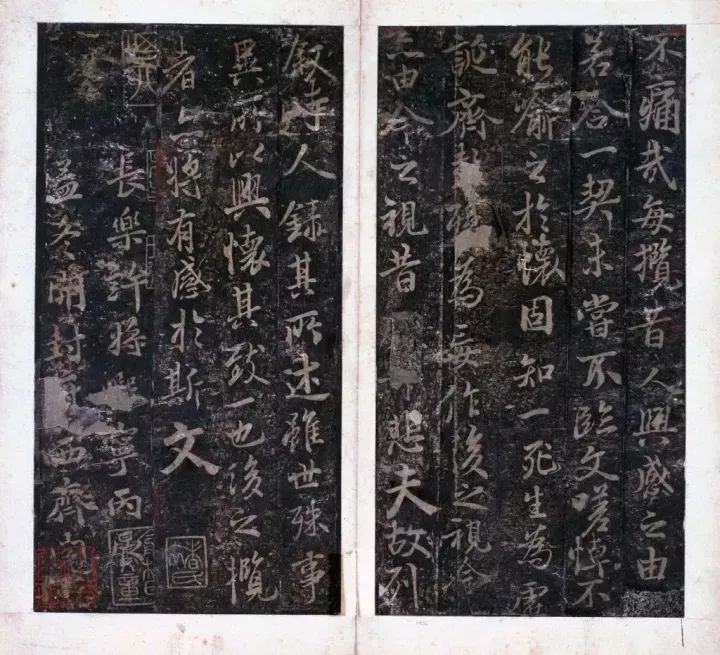 不痛哉每攬昔人興感之由
若合一契未嘗不臨文嗟悼不
能喻之於懷固知一死生為虛
誕齊彭殤為妄作後之視今
亦由今之視昔悲夫故列
敘時人錄其所述雖世殊事
異所以興懷其致一也後之攬
者亦將有感於斯文
長樂許將熙寧丙
孟冬開封西齊